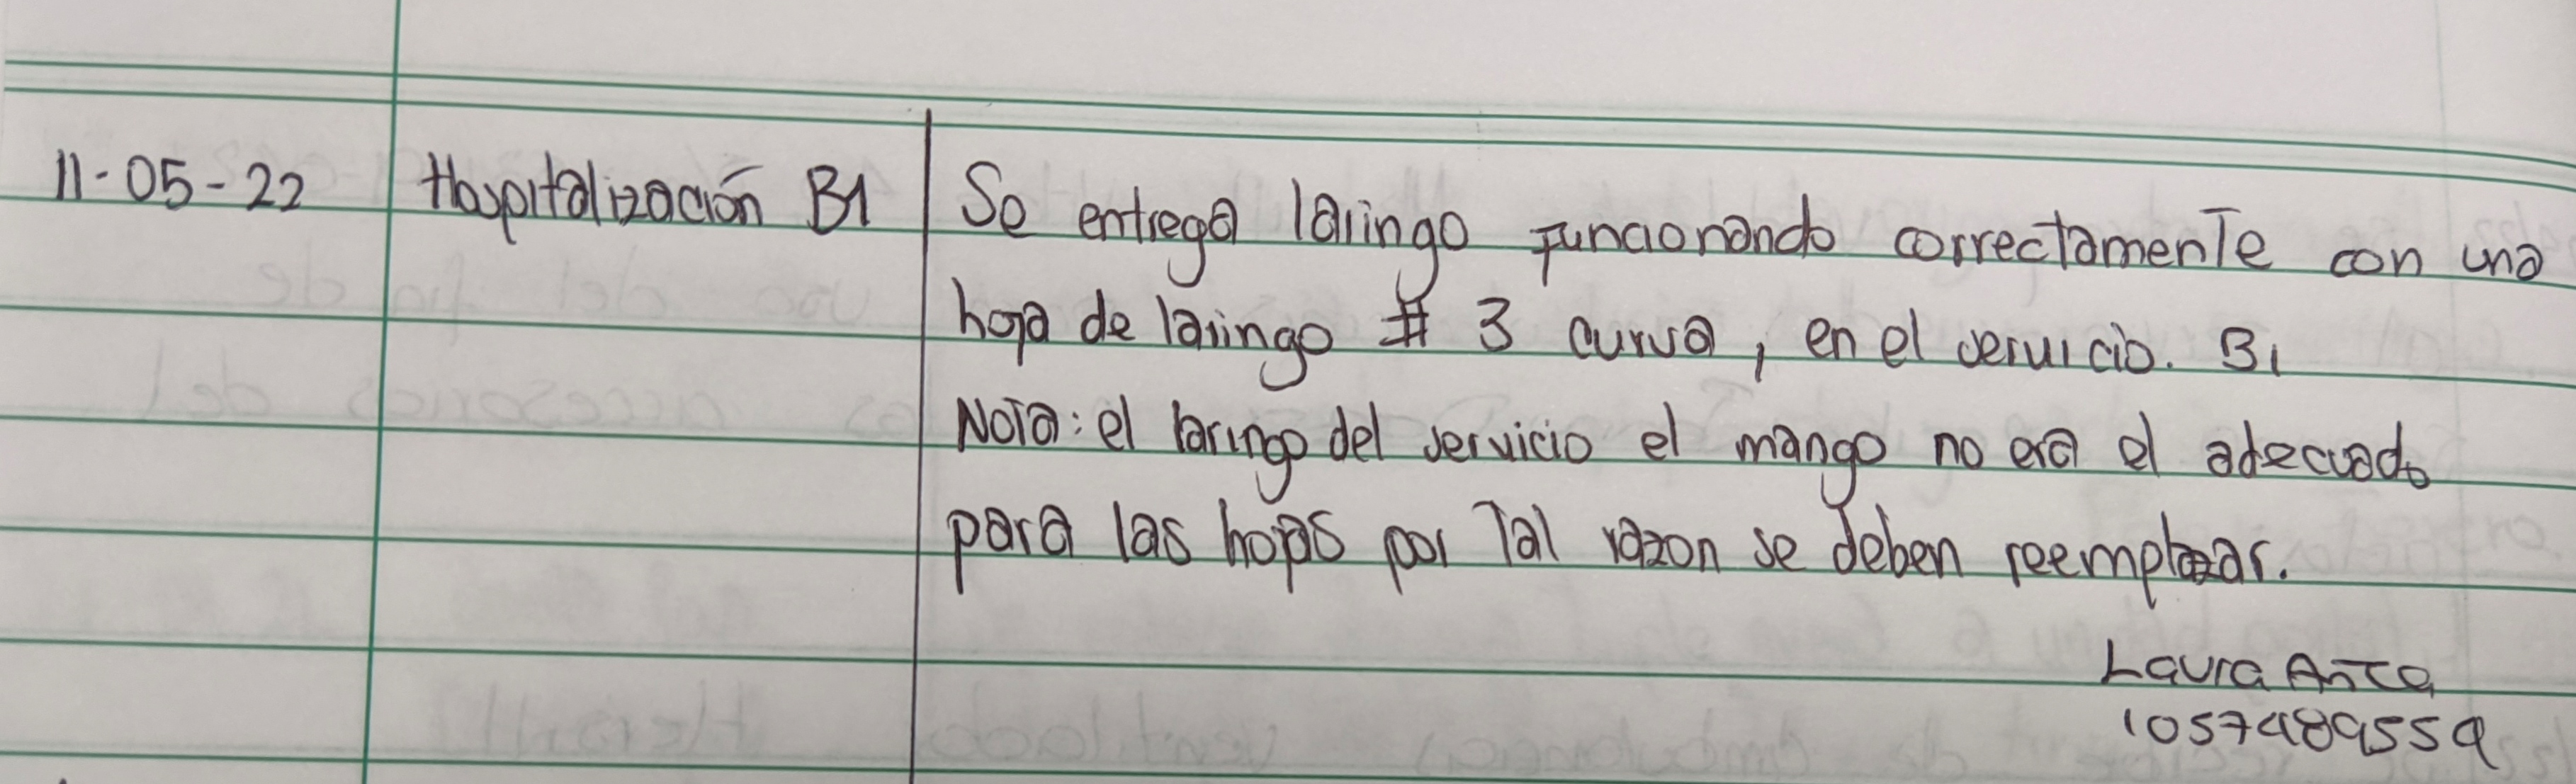 11-05-22 Hospitalización B1 Se entrega laringo funcionando correctamente con una
hoja de laringo # 3 curva, en el servicio. B1
Nota: el laringo del servicio el mango no era el adecuado
para las hojas por tal razon se deben reemplazar.
Laura
1057489559